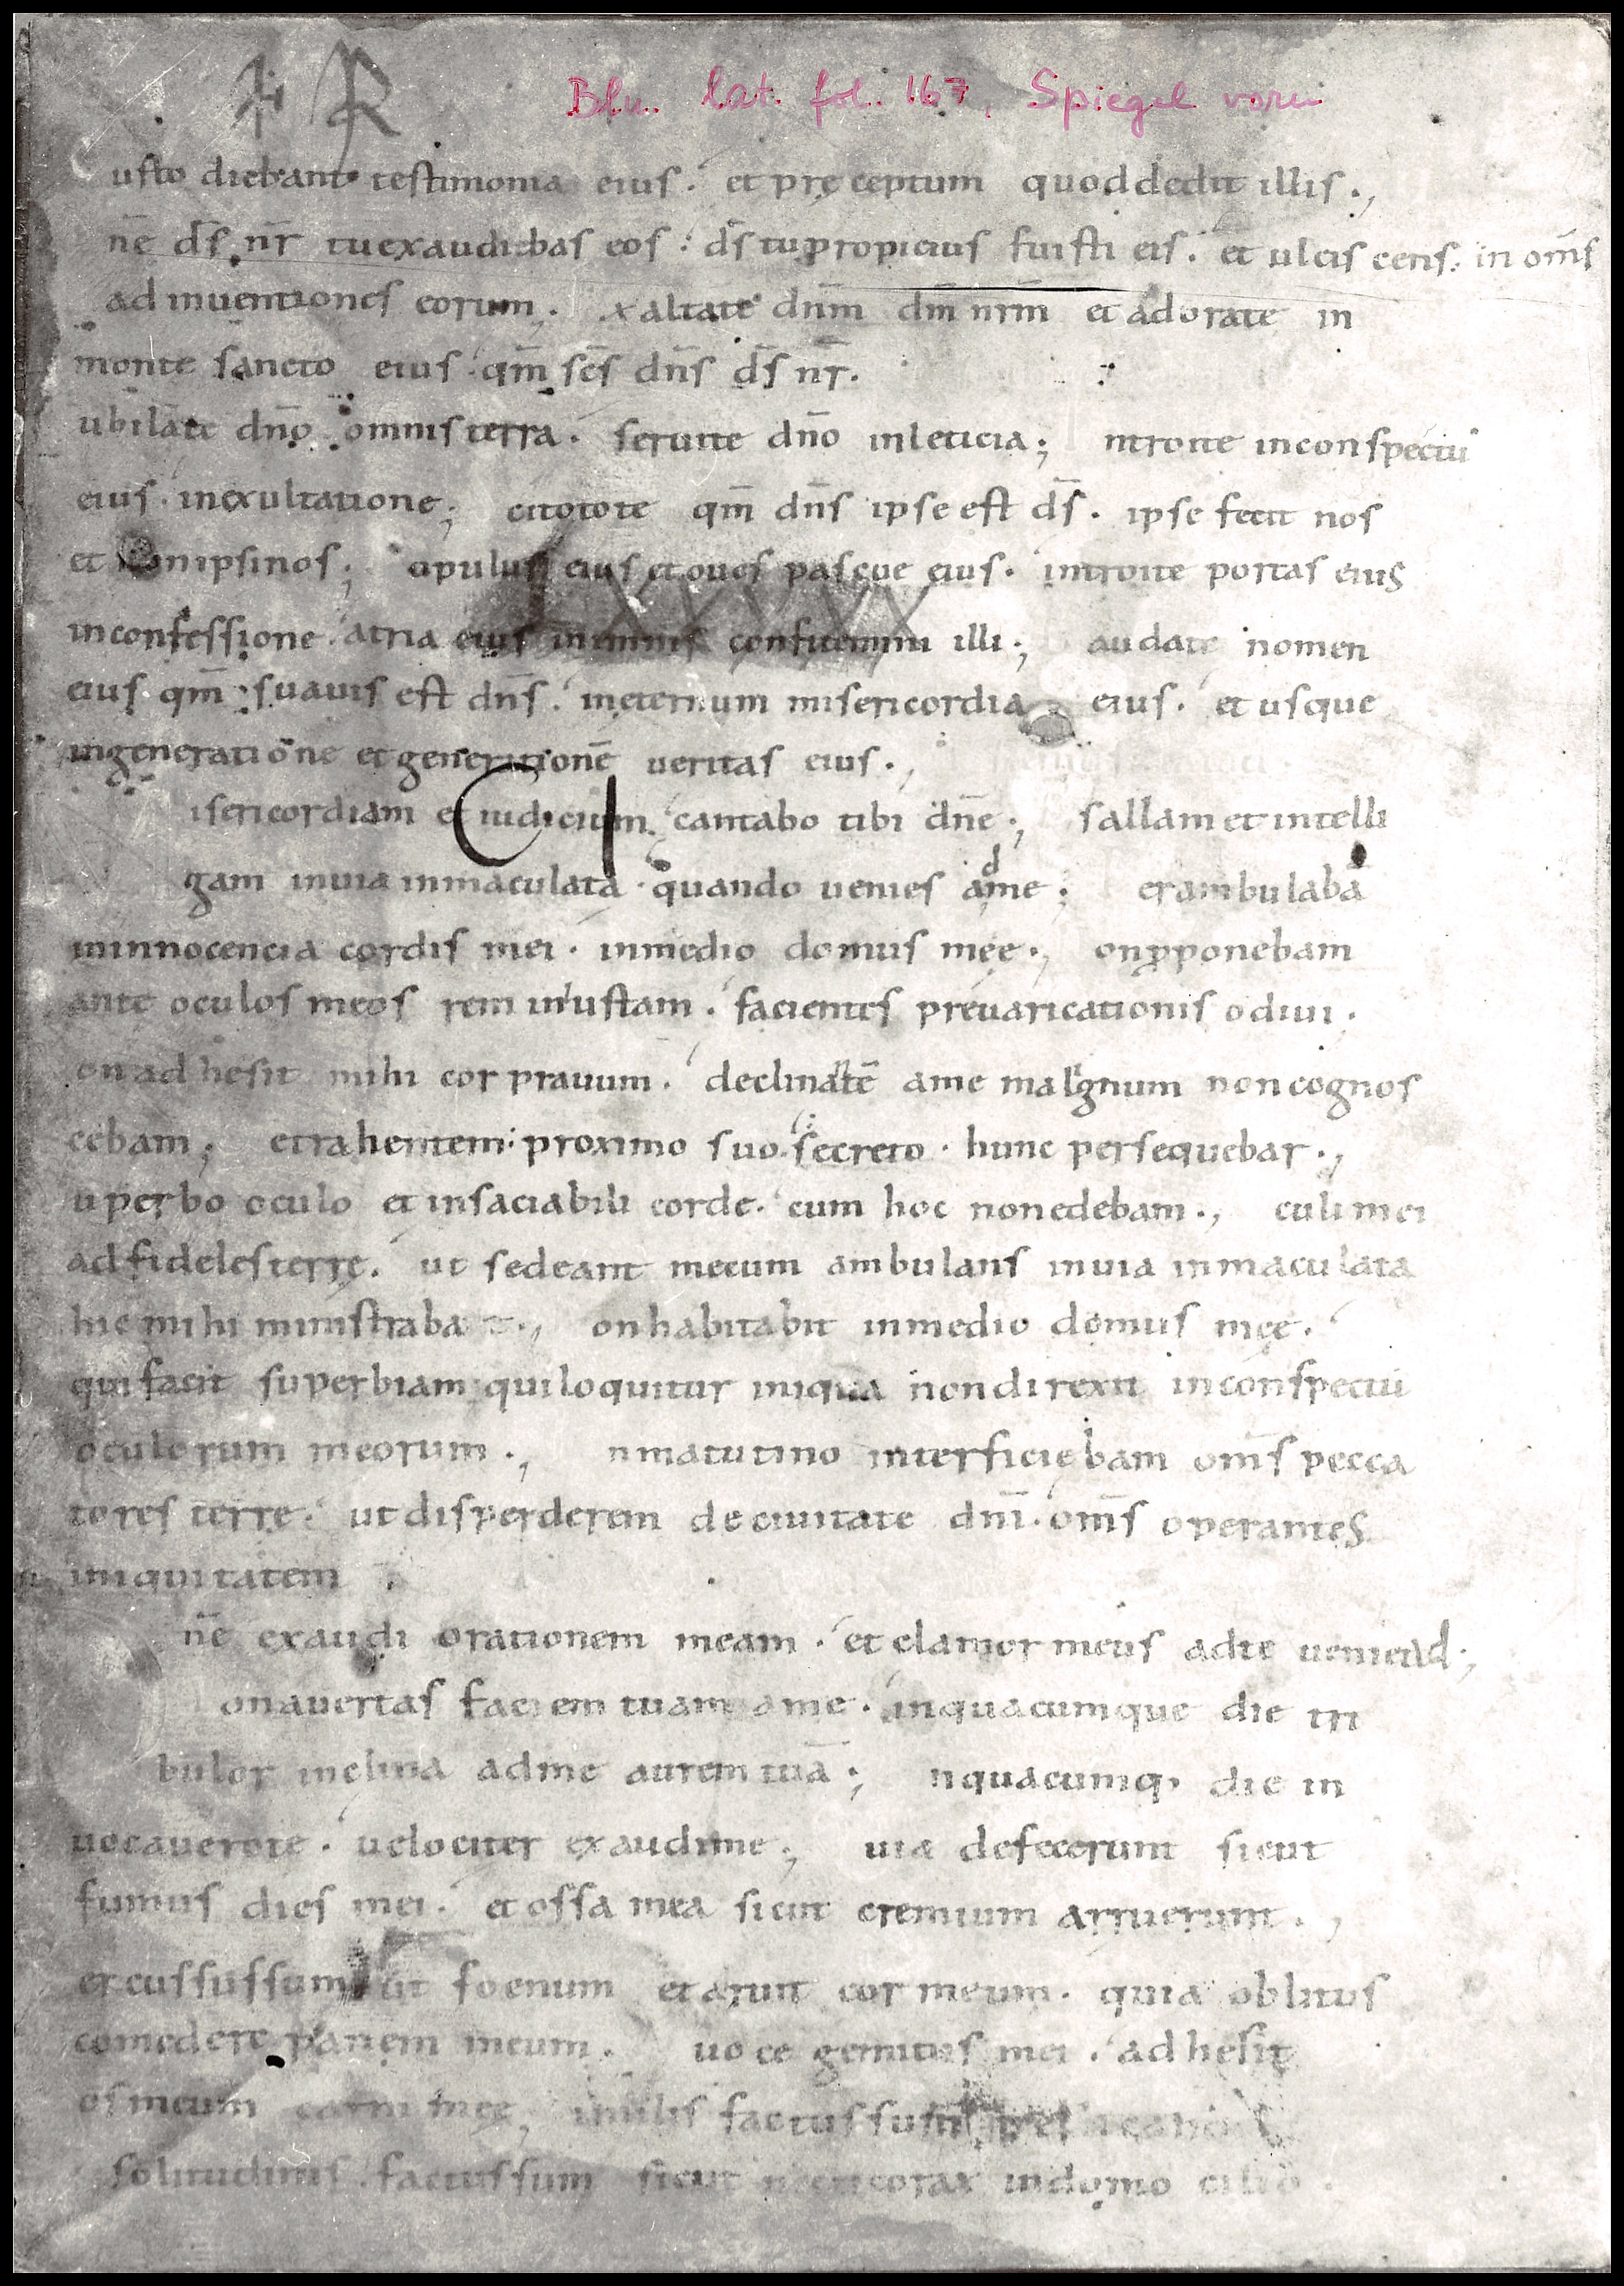 Bln. lat. fol. 167, Spiegel vorn
usto diebant testimonia eius. et pręceptum quod dedit illis.,
nē ds̄ nr̄ tu exaudiebas eos. ds̄ tu propicius fuisti eis. et ulciscens in om̄s
ad inuentiones eorum; xaltate dn̄m dm̄ nr̄m et adorate in
monte sancto eius. qm̄ sc̄s dn̄s ds̄ nr̄.
ubilate dn̄o omnis terra. seruite dn̄o in leticia; ntroite in conspectu
eius. in exultatione; citotote qm̄ dn̄s ipse est ds̄. ipse fecit nos
et non ipsi nos; opulus eius et oues pascue eius. introite portas eius
in confessione atria eius in imnis confitemini illi; audate nomen
eius qm̄ suauis est dn̄s. in eternum misericordia eius. et usque
in generatione et generationē ueritas eius.,
isericordiam et iudicium cantabo tibi dn̄e; sallam et intelli
gam in uia inmaculata. quando uenies a d me; erambulabā
in innocencia cordis mei. in medio domus męe., on proponebam
ante oculos meos rem iniustam. facientes preuaricationis odiui.
on adhesit mihi cor prauum. declinatē a me malignum non cognos
cebam; etrahentem proximo suo secreto. hunc persequebar.,
uperbo oculo et insaciabili corde. cum hoc non edebam., culi mei
ad fideles terrę. ut sedeant mecum ambulans in uia inmaculata
hic mihi ministrabat., on habitabit in medio domus męe.
qui facit superbiam qui loquitur iniqua non direxit in conspectu
oculorum meorum., n matutino interficiebam om̄s pecca
tores terre. ut disperderem de ciuitate dn̄i. om̄s operantes
iniquitatem
nē exaudi orationem meam. et clamor meus ad te
on auertas faciem tuam a me. in quacumque die tri
bulor inclina ad me aurem tuā; n quacumq, die in
uocauerote. uelociter exaudi me; uia defecerunt sicut
fumus dies mei. et ossa mea sicut cremium arruerunt.,
ercussus sum ut foenum et aruit cor meum. quia oblitus
comedere panem meum. uoce gemitus mei. adhesit
os meum carni meę, imilis factus sum
solitudinis. factus sum sicut nicticorax in domo